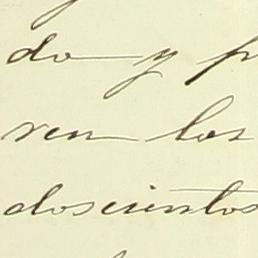 do y p
ren los
doscientos